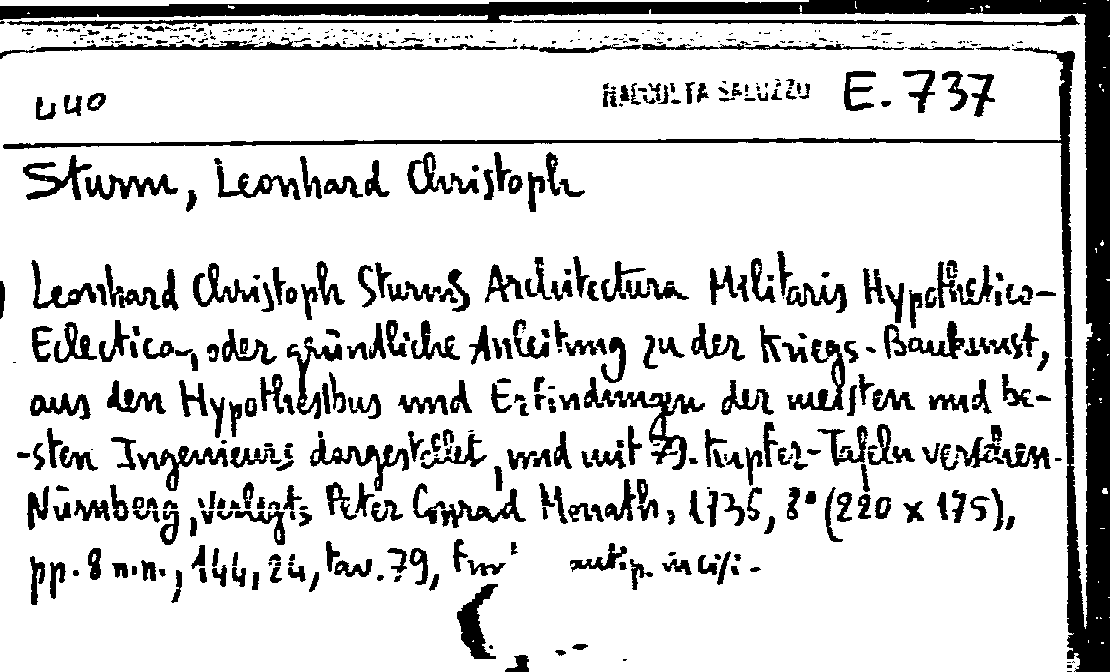 440 RACCOLTA SALUZZO E. 737
Sturm, Leonhard Christoph
Leonhard Christoph Sturms Architectura Militaris Hypothetico-
Eclectica, oder gründliche Anleitung zu der Kriegs-Baukunst,
aus den Hypothesibus und Erfindungen der meisten und be-
-sten Ingenieurs dargestellet, und mit 79. Kupfer-Tafeln versehen.
Nürnberg, verlegts Peter Conrad Monath, 1736, 8° (220 x 175),
pp. 8 n.n., 144, 24, tav. 79, antip. incisi.